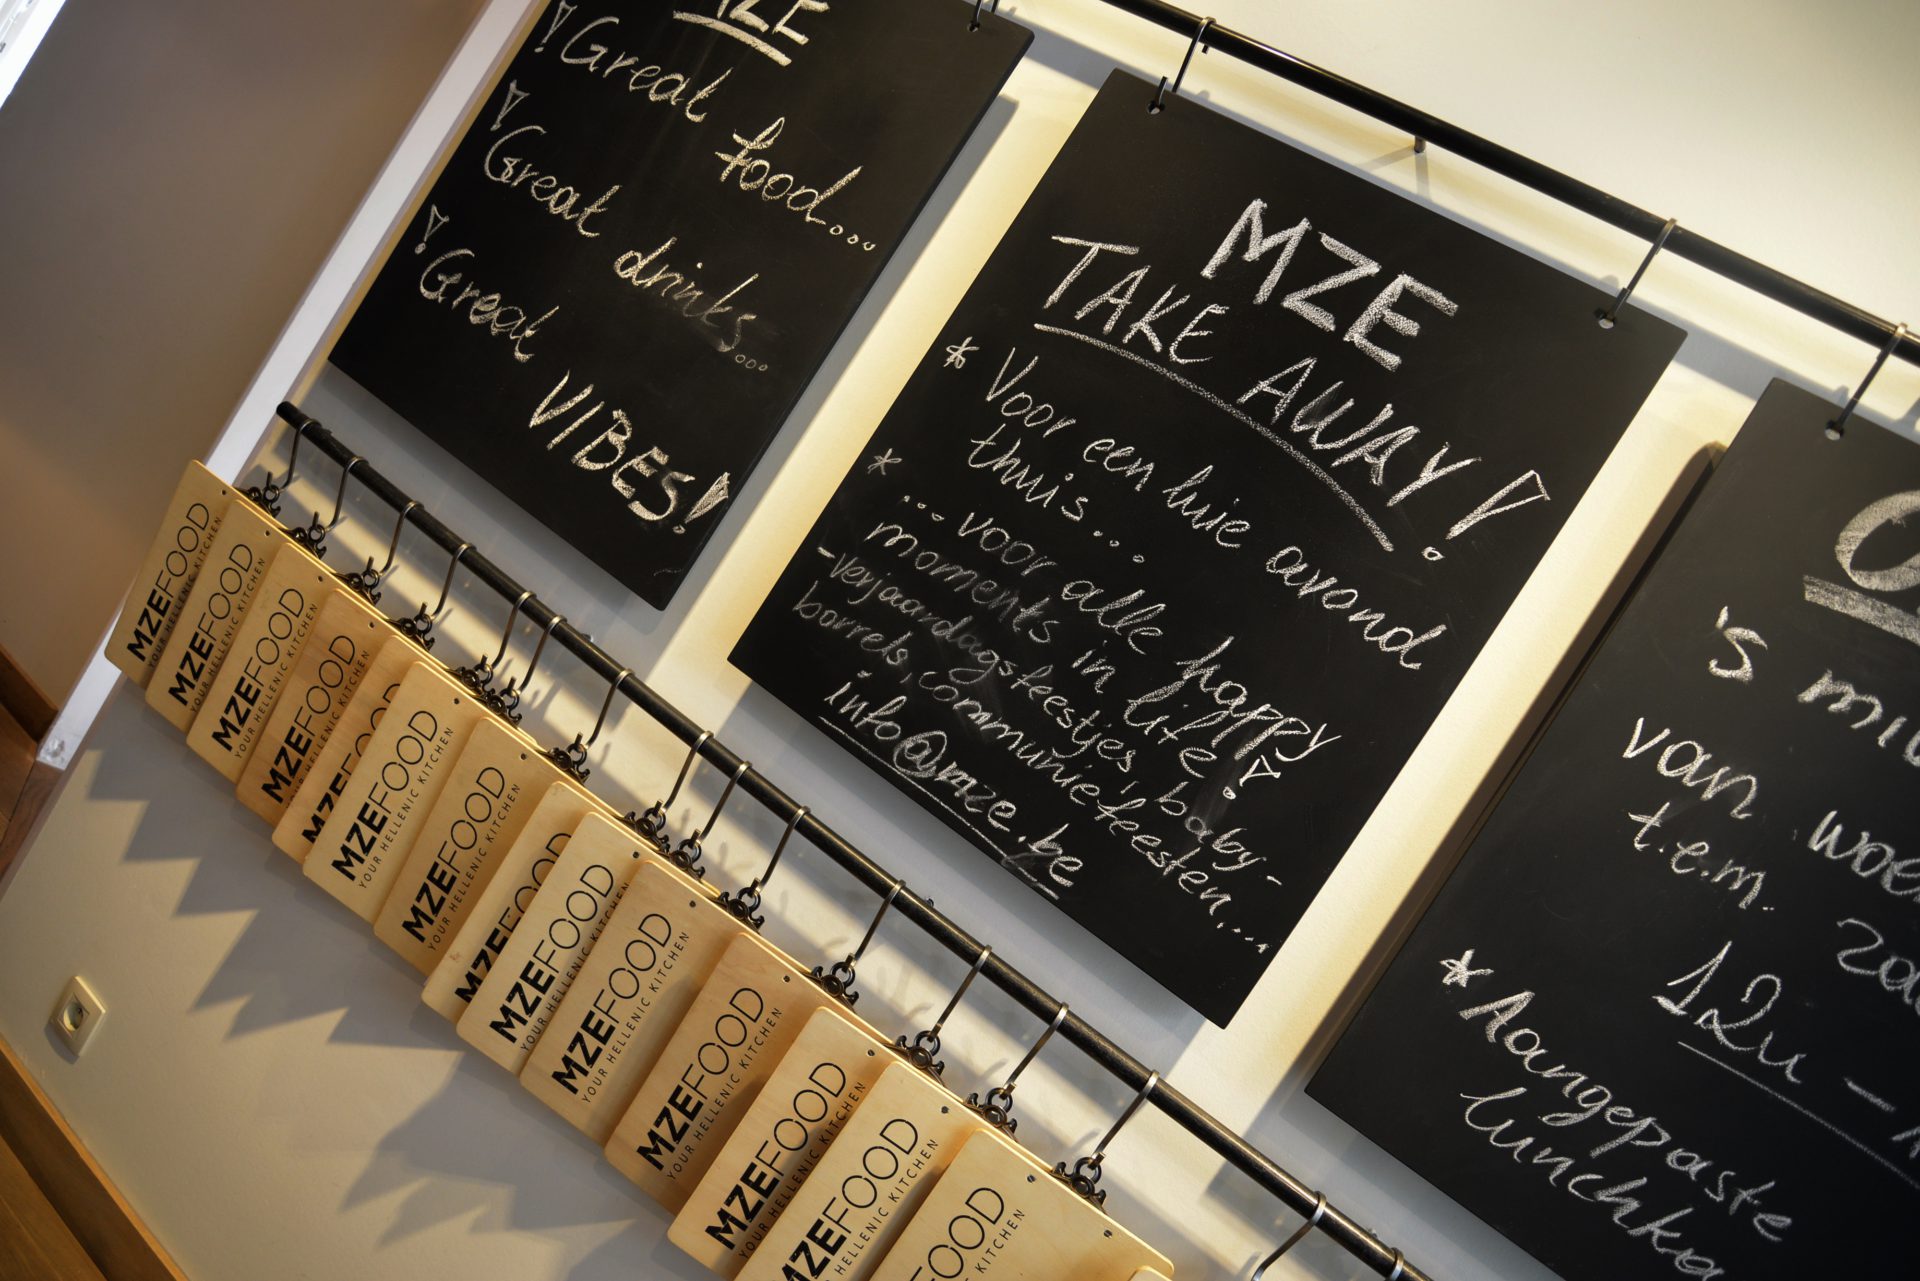 ! Great food...
! Great drinks...
! Great VIBES!
MZE
TAKE AWAY!
* Voor een luie avond
thuis...
* ...voor alle happy
moments in life!
-verjaardagsfeestjes, baby-
borrels, communiefeesten,...
info@mze.be
's
van
t.e.m.
12u -
* Aangepaste
MZEFOOD
YOUR HELLENIC KITCHEN
MZEFOOD
YOUR HELLENIC KITCHEN
MZEFOOD
YOUR HELLENIC KITCHEN
MZEFOOD
YOUR HELLENIC KITCHEN
MZEFOOD
MZEFOOD
YOUR HELLENIC KITCHEN
MZEFOOD
YOUR HELLENIC KITCHEN
MZEFOOD
MZEFOOD
YOUR HELLENIC KITCHEN
MZEFOOD
YOUR HELLENIC KITCHEN
MZEFOOD
YOUR HELLENIC KITCHEN
MZEFOOD
YOUR HELLENIC KITCHEN
MZEFOOD
HELLENIC KITCHEN
FOOD
KITCHEN